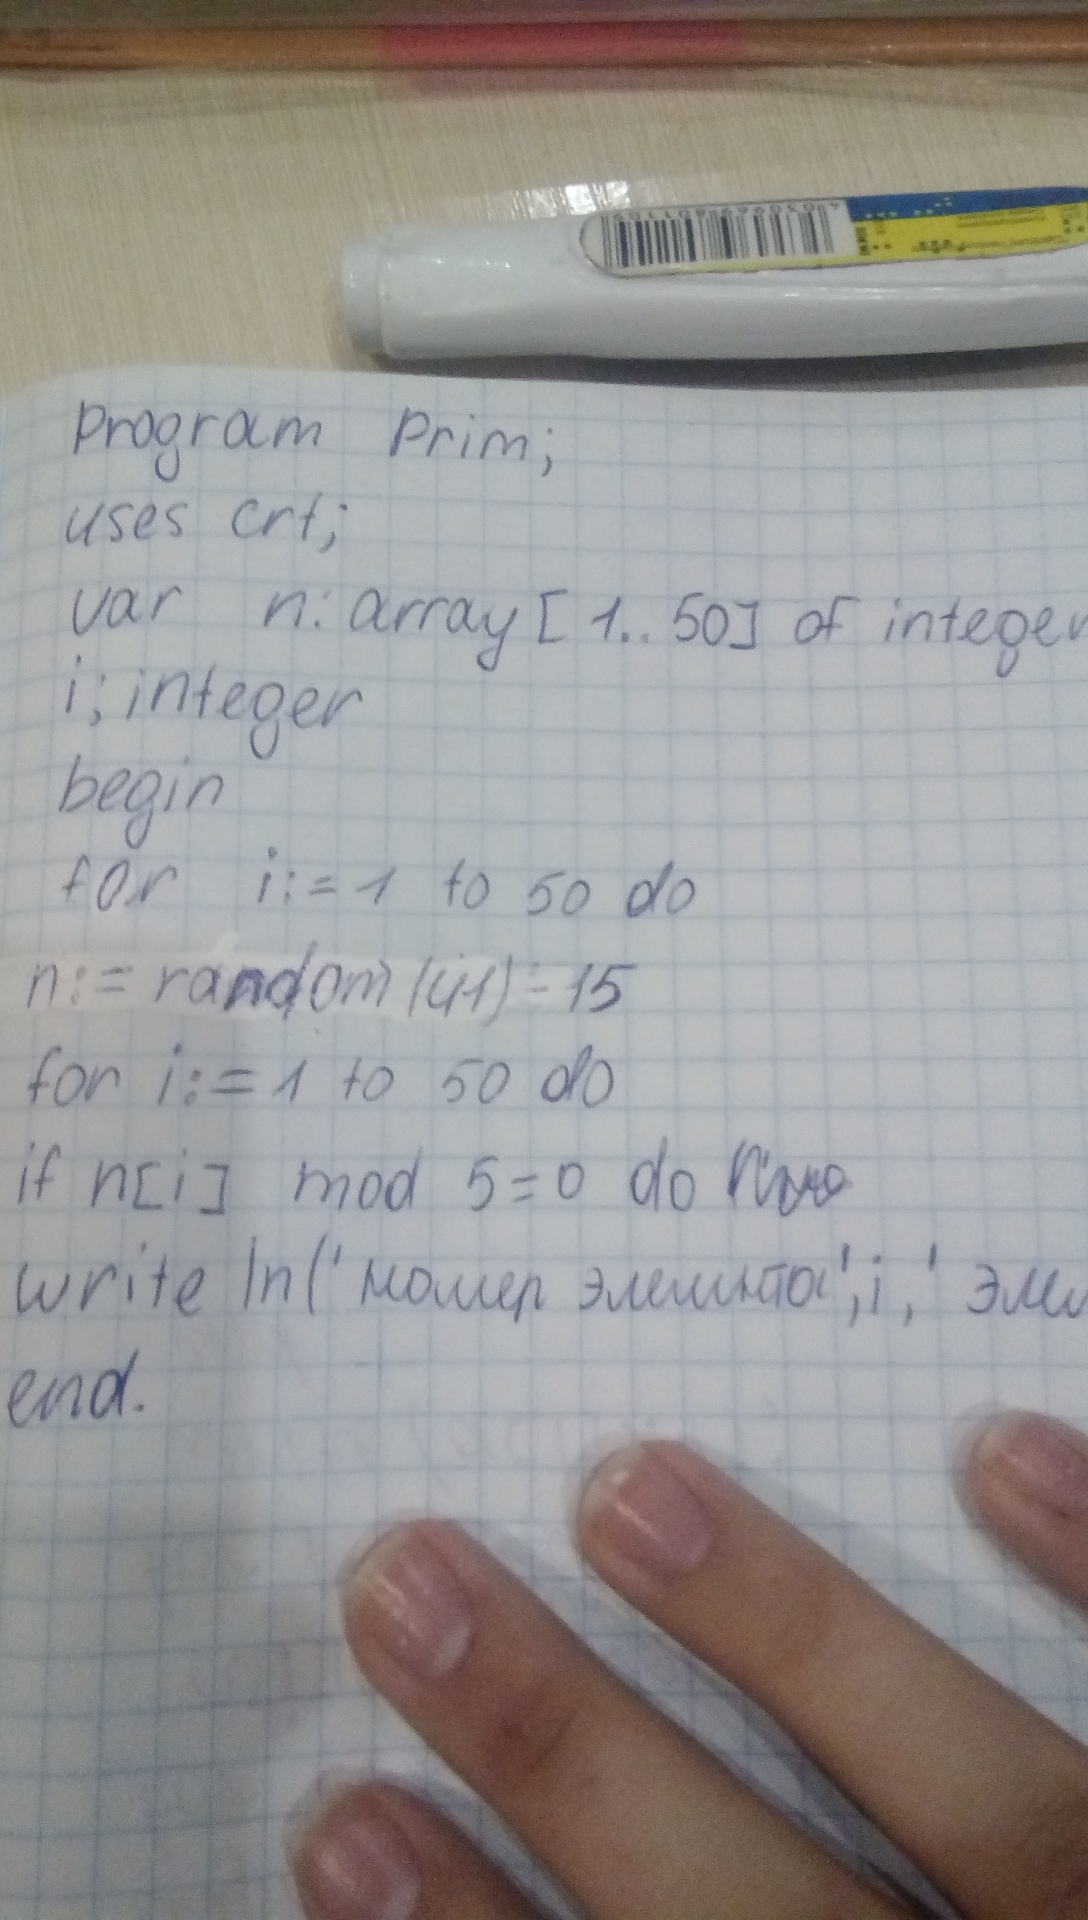 Program Prim;
uses crt;
var n: array [1..50] of integer
i; integer
begin
for i:=1 to 50 do
n:= random (41)-15
for i:=1 to 50 do
if n[i] mod 5=0 do
write ln('номер элемента', i, '
end.